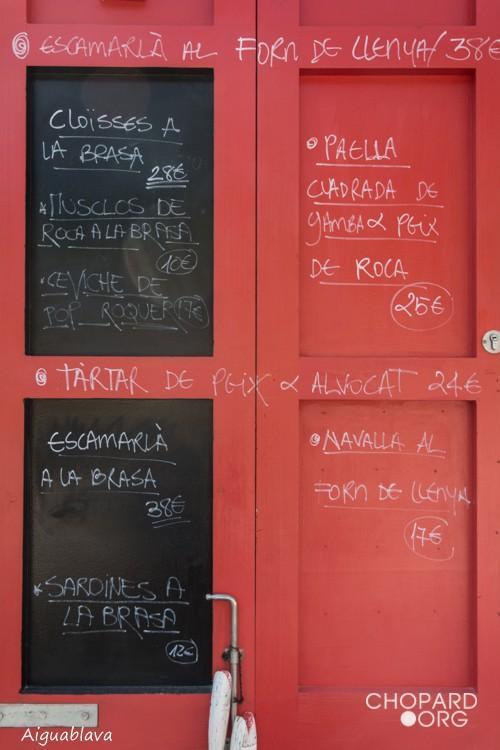 ESCAMARLÀ AL FORN DE LLENYA/ 38€
CLOÏSSES A
LA BRASA
28€
*MUSCLOS DE
ROCA A LA BRASA
10€
CEVICHE DE
POP ROQUER 17€
PAELLA
CUADRADA DE
GAMBA & PEIX
DE ROCA
25€
TÀRTAR DE PEIX & ALVOCAT 24€
ESCAMARLÀ
A LA BRASA
38€
*SARDINES A
LA BRASA
12€
NAVALLA AL
FORN DE LLENYA
17€
CHOPARD
ORG
Aiguablava